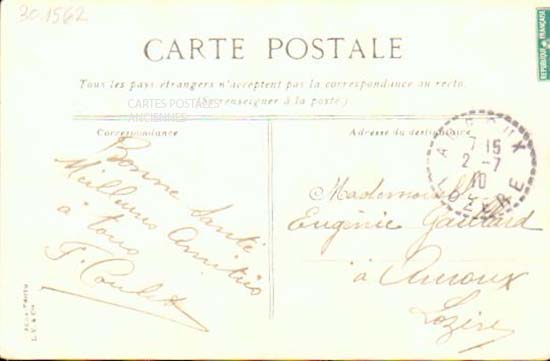 30.1562
CARTE POSTALE
Tous les pays étrangers n'acceptent pas la correspondance au recto.
(Se renseigner à la poste)
CARTES POSTALES
ANCIENNES
Correspondance
Adresse du destinataire
Bonne Santé
Meilleures Amitiés
à tous
F. Coulet
REPUBLIQUE FRANÇAISE
7 15
2 - 7
10
LOZERE
Mademoiselle
Eugénie
à Auroux
Lozère